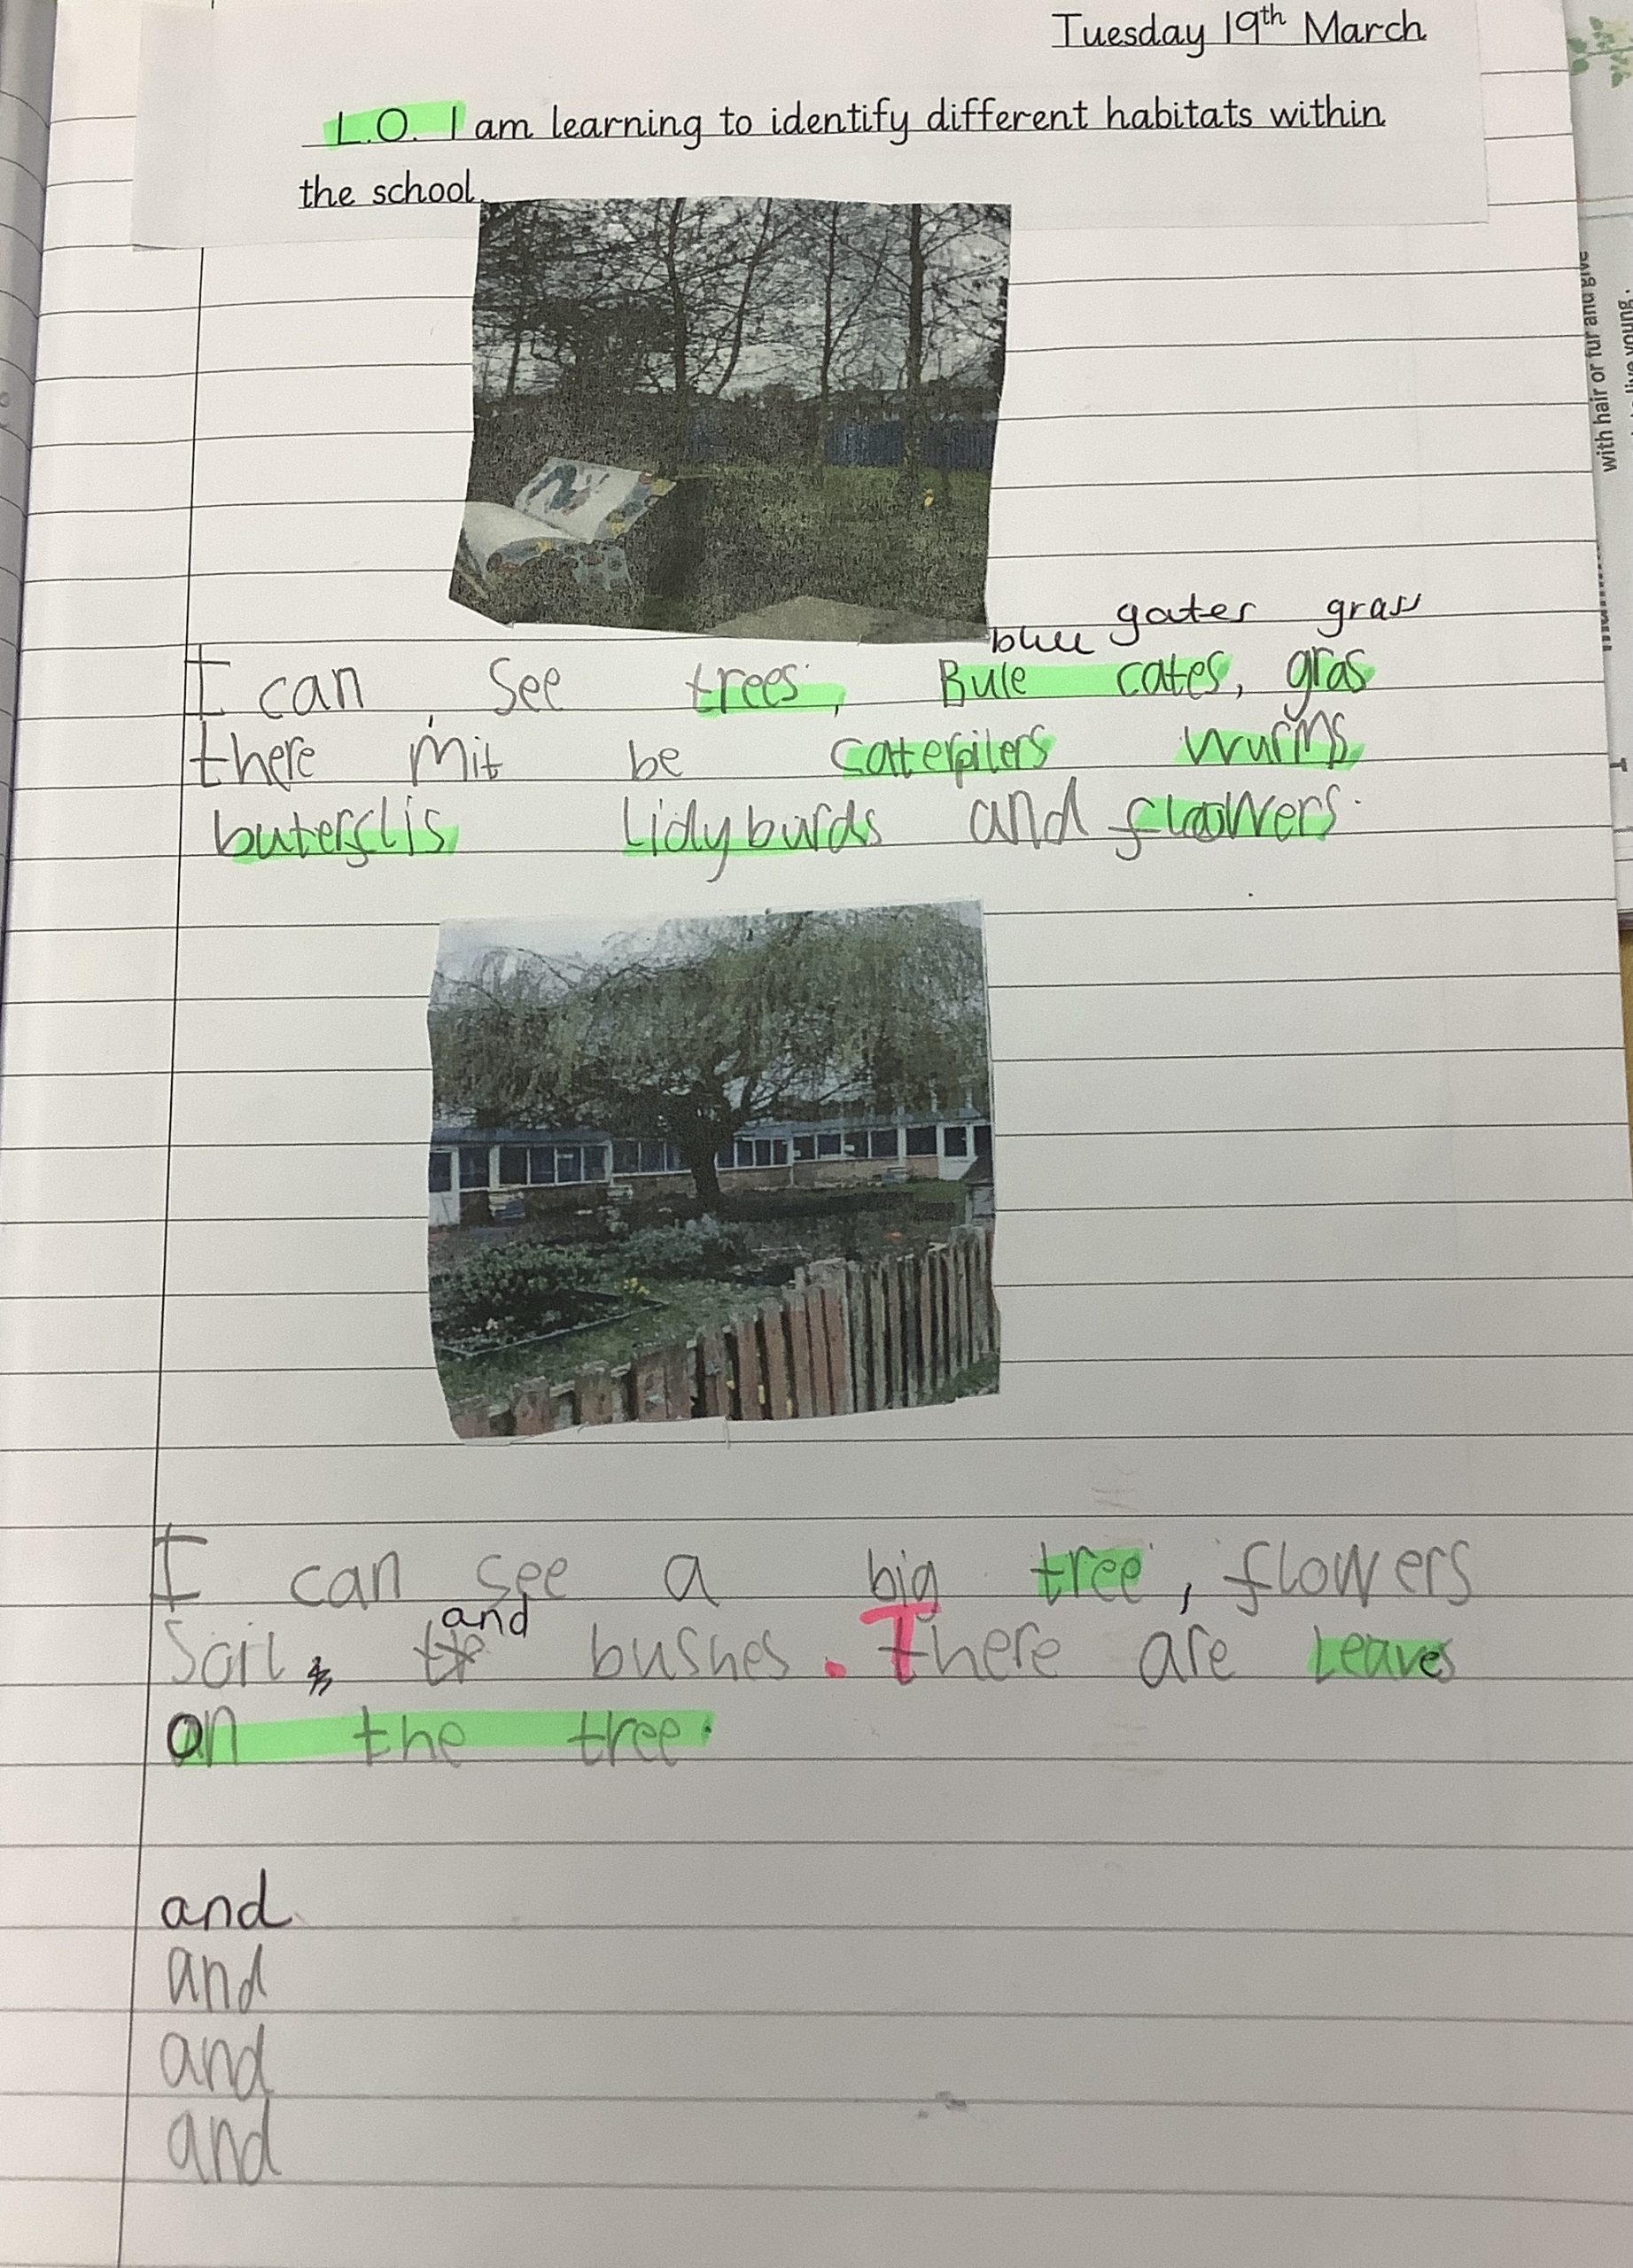 Tuesday 19th March
L.O. I am learning to identify different habitats within
the school.
blue gates grass
I can see trees, Bule cates, gras
there mit be catterpilers wurms
buterflis Lidyburds and flowers.
I can see a big tree, flowers
and
Soil, bushes. There are Leaves
on the tree.
and
and
and
and
with hair or fur and give
live young.